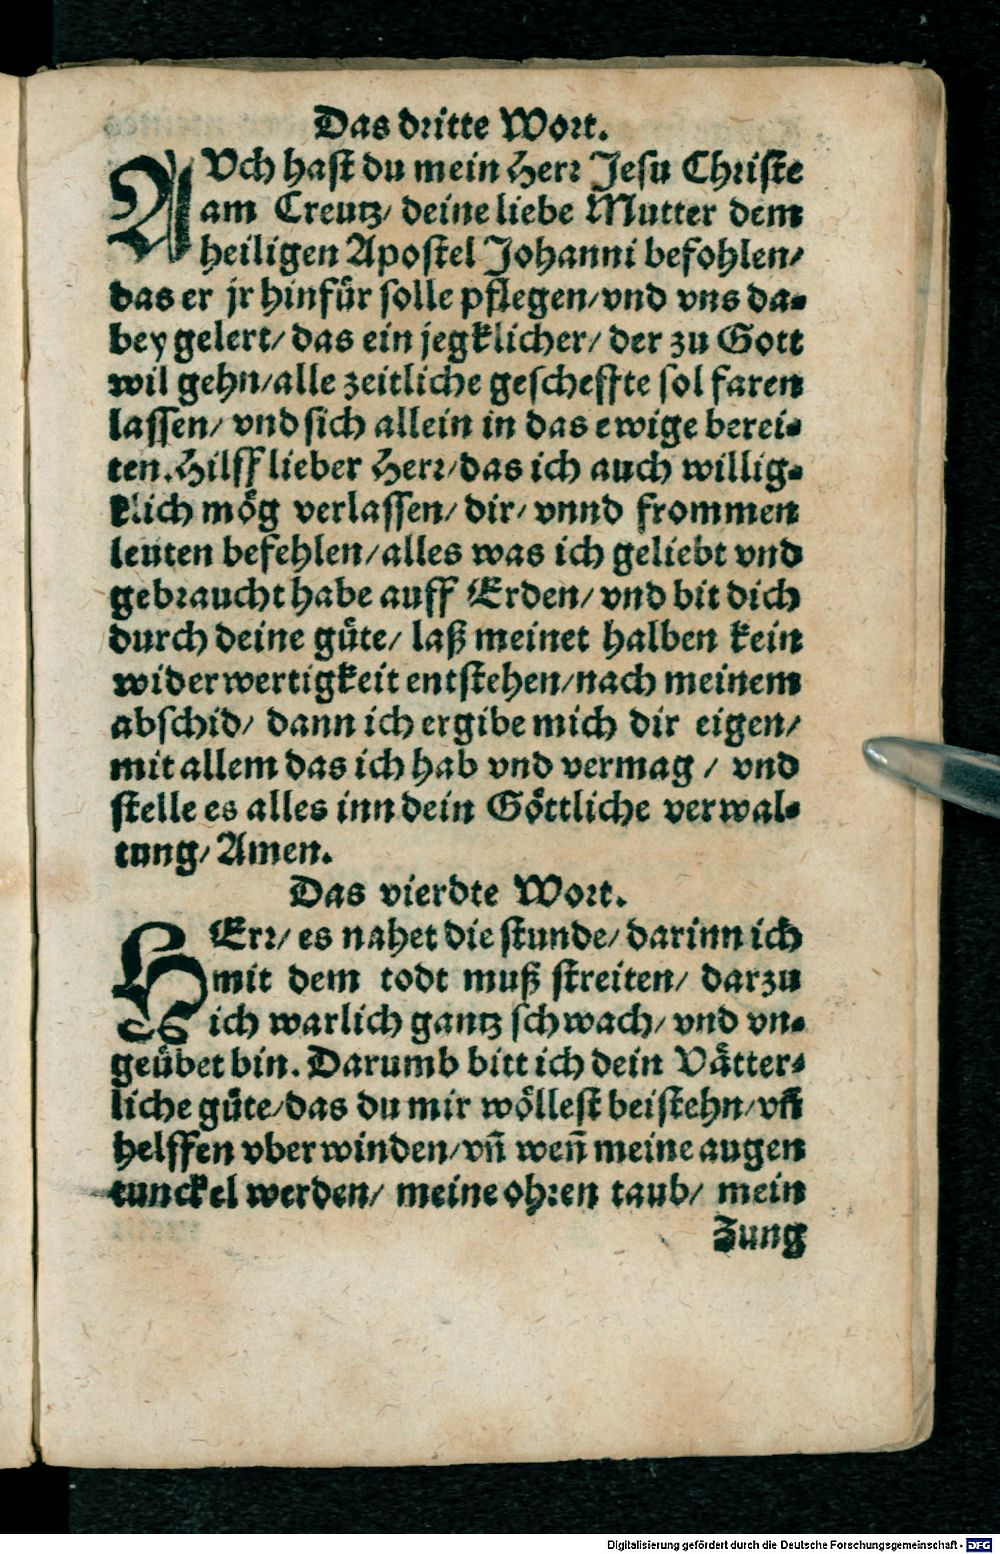 Das dritte Wort.
AUch hast du mein Herr Jesu Christe
am Creutz/ deine liebe Mutter dem
heiligen Apostel Johanni befohlen/
das er jr hinfür solle pflegen/vnd vns da-
bey gelert/ das ein jegklicher/ der zu Gott
wil gehn/alle zeitliche gescheffte sol faren
lassen/ vnd sich allein in das ewige berei-
ten. Hilff lieber Herr/das ich auch willig-
klich mög verlassen/ dir/ vnnd frommen
leuten befehlen/alles was ich geliebt vnd
gebraucht habe auff Erden/ vnd bit dich
durch deine güte/ laß meinet halben kein
widerwertigkeit entstehen/nach meinem
abschid/ dann ich ergibe mich dir eigen/
mit allem das ich hab vnd vermag / vnd
stelle es alles inn dein Göttliche verwal-
tung/ Amen.
Das vierdte Wort.
HErr/ es nahet die stunde/ darinn ich
mit dem todt muß streiten/ darzu
ich warlich gantz schwach/ vnd vn-
geübet bin. Darumb bitt ich dein Vätter-
liche güte/das du mir wöllest beistehn/vñ
helffen vberwinden/vñ weñ meine augen
tunckel werden/ meine ohren taub/ mein
Zung
Digitalisierung gefördert durch die Deutsche Forschungsgemeinschaft - DFG